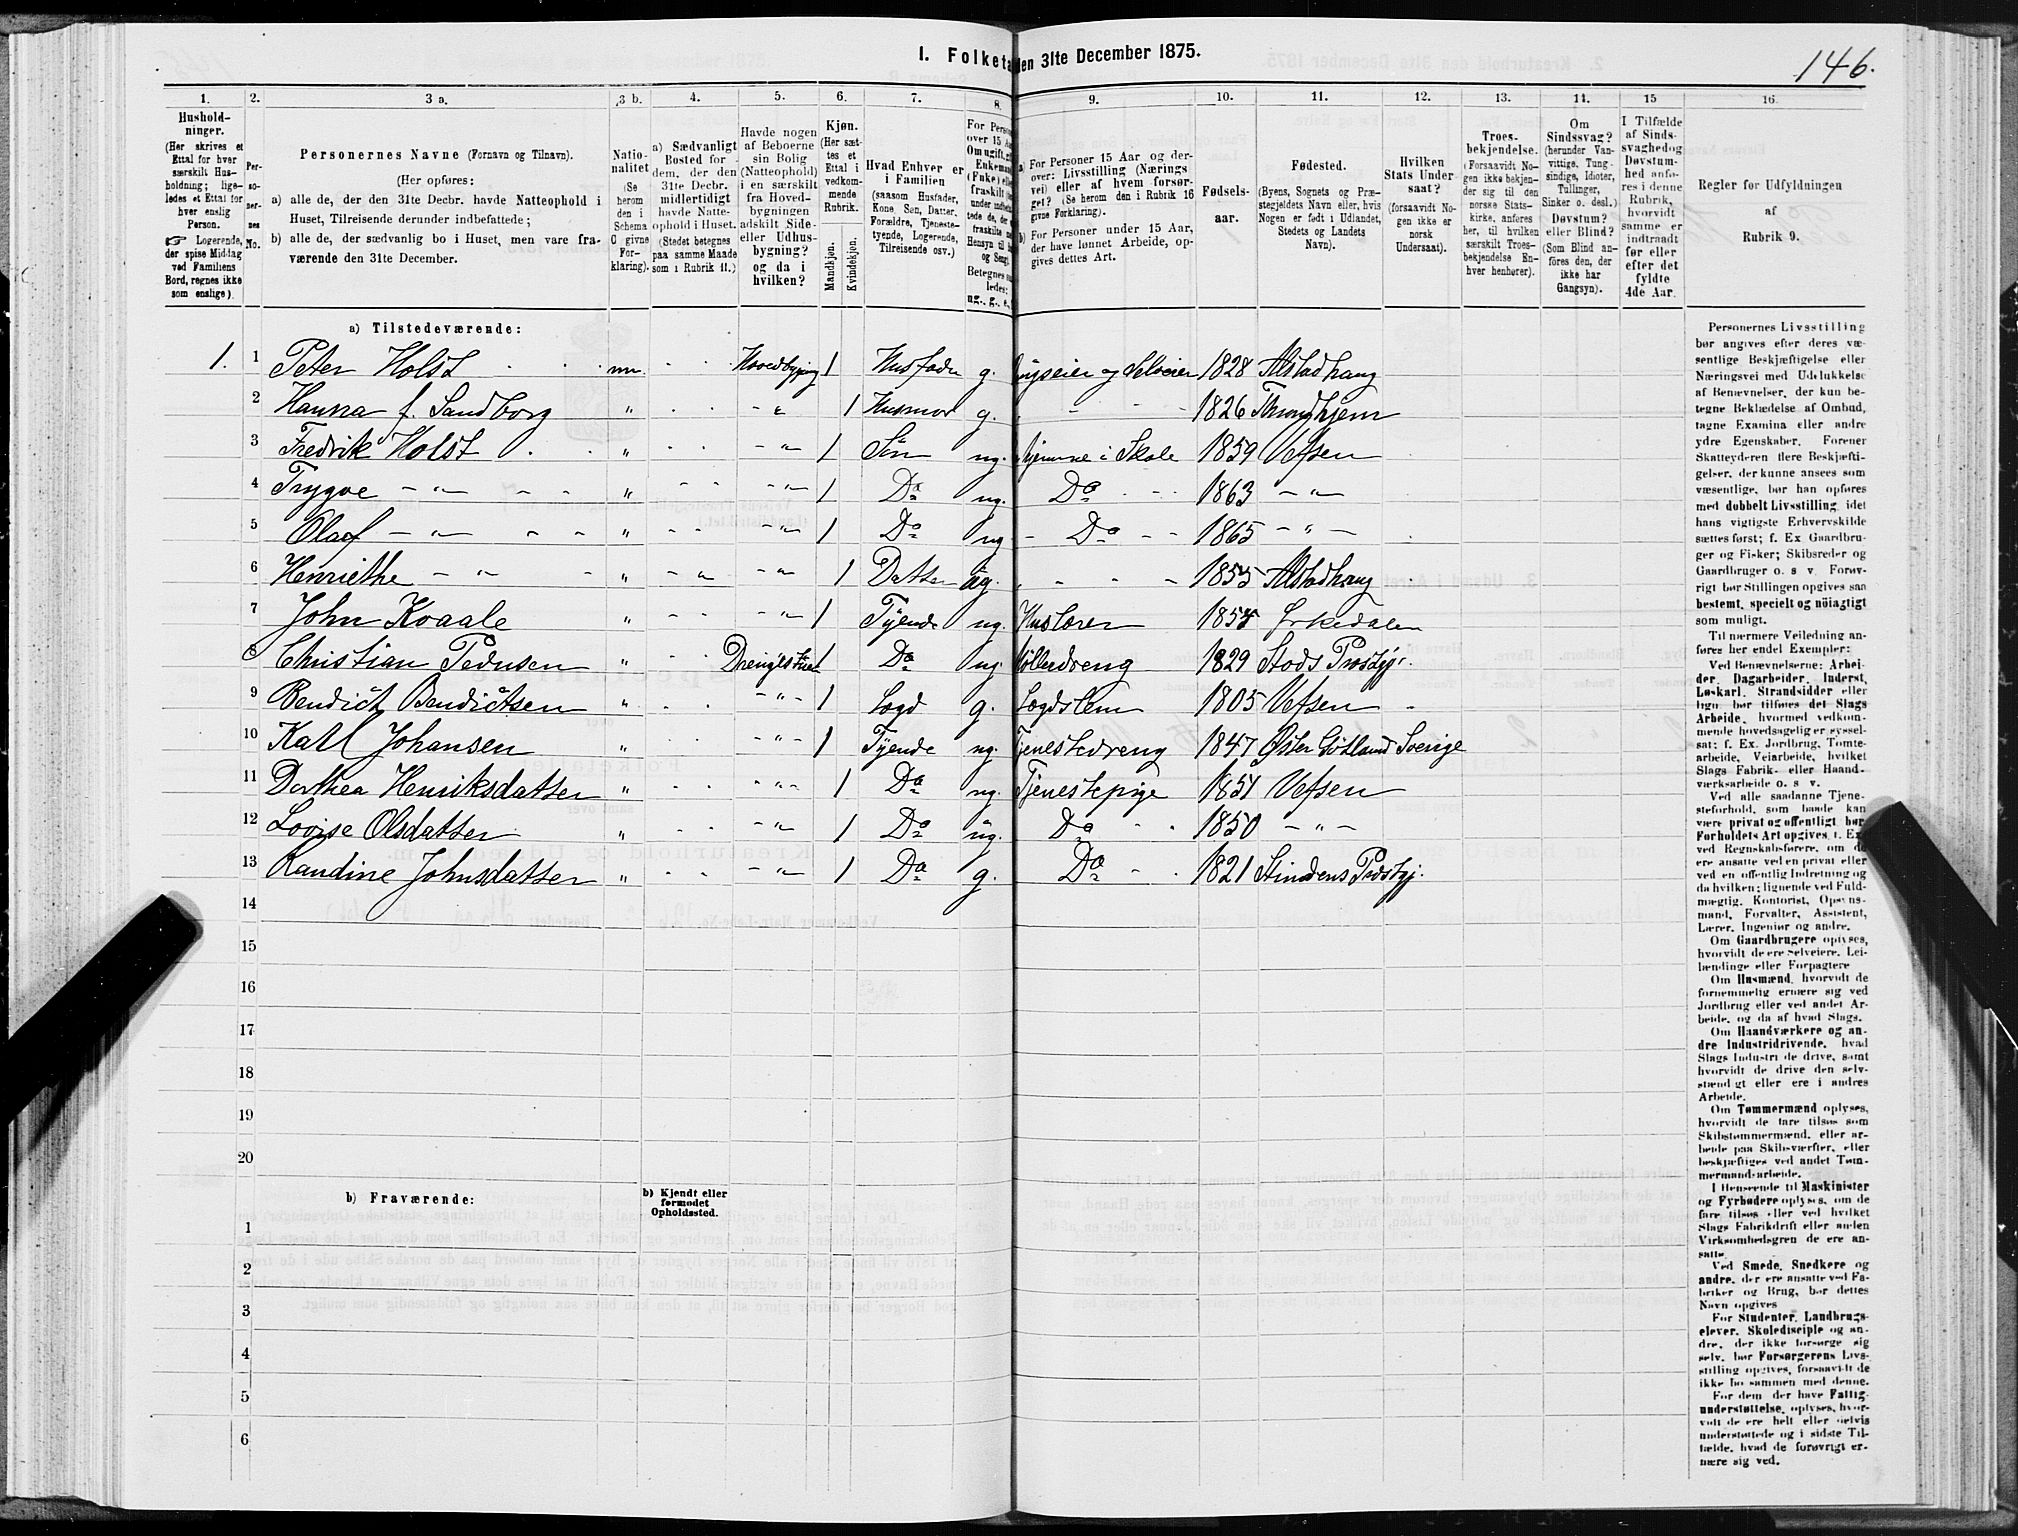 146.
I. Folketa
den 31te December 1875.
1. 2. 3 a. 3 b. 4. 5. 6. 7. 8. 9. 10. 11. 12. 13. 14. 15 16.
Hushold-
ninger.
(Her skrives et
Ettal for hver
særskilt Hus-
holdning; lige-
ledes et Ettal for
hver enslig
Person.
☞ Logerende,
der spise Middag
ved Familiens
Bord, regnes ikke
som enslige).
Per-
so-
ner-
nes
No.
Personernes Navne (Fornavn og Tilnavn).
(Her opføres:
a) alle de, der den 31te Decbr. havde Natteophold i
Huset, Tilreisende derunder indbefattede;
b) alle de, der sædvanlig bo i Huset, men vare fra-
værende den 31te December.
Natio-
nalitet
(Se
herom
den i
Schema
O givne
For-
klaring).
a) Sædvanligt
Bosted for
dem, der den
31te Decbr.
midlertidigt
havde Natte-
ophold i Huset.
(Stedet betegnes
paa samme Maade
som i Rubrik 11.)
Havde nogen
af Beboerne
sin Bolig
(Natteophold)
i en særskilt
fra Hoved-
bygningen
adskilt Side-
eller Udhus-
bygning?
og da i
hvilken?
Kjøn.
(Her sæt-
tes et
Ettal i
vedkom-
mende
Rubrik.
Mandkjøn.
Kvindekjøn.
Hvad Enhver er
i Familien
(saasom Husfader,
Kone, Søn, Datter,
Forældre, Tjeneste-
tyende, Logerende,
Tilreisende osv.)
For Perso
over 15 Aar
Om ugift, gi
Enkemand
(Enke) ell
fraskilt
Betegnes
ledes:
ug., g., e.,
a) For Personer 15 Aar og der-
over: Livsstilling (Nærings-
vei) eller af hvem forsør-
get? (Se herom den i Rubrik 16
givne Forklaring).
b) For Personer under 15 Aar,
der have lønnet Arbeide, op-
gives dettes Art.
Fødsels-
aar.
Fødested.
(Byens, Sognets og Præ-
stegjeldets Navn eller, hvis
Nogen er født i Udlandet,
Stedets og Landets
Navn).
Hvilken
Stats Under
saat?
(forsaavidt No-
gen ikke er
norsk
Undersaat).
Troes-
bekjendelse.
(Forsaavidt No-
gen ikke bekjen-
der sig til den
norske Stats-
kirke, anføres
her, til hvilken
særskilt Troes-
bekjendelse En-
hver henhører).
Om
Sindssvag?
(herunder Van-
vittige, Tung-
sindige, Idioter,
Tullinger,
Sinker o. desl.)
Døvstum?
eller Blind?
(Som Blind an-
föres den, der
ikke har
Gangsyn).
I Tilfælde
af Sinds-
svaghed og
Døvstum-
hed anfø-
res i denne
Rubrik,
hvorvidt
samme er
indtraadt
før eller
efter det
fyldte
4de Aar.
Regler for Udfyldningen
af
Rubrik 9.
a) Tilstedeværende:
1. 1 Peter Holst nn. Hovedbygnig 1 Husfader g. 1828 Alstadhaug
2 Hanna f. Sandborg " 1 Husmor g. 1826 Throndhjem
3 Fredrik Holst " - " 1 Søn ug. i Skole 1859 Vefsen
4 Trygve - " - " - " 1 Do ug. Do 1863 - " -
5 Olaf - " - " - " 1 Do ug. Do 1865 - " -
6 Henriethe - " - " - " - " 1 Datter ug. 1855 Alstadhaug
7 John Kvaale " - " 1 Tyende ug. Huslærer Ørkedalen
8 Christian Pedersen " 1 Do ug. 1829 Stods Prstgj.
9 Bendict Bendictsen " - " 1 Logd g. Logdslem 1805 Vefsen
10 Karl Johansen " - " 1 Tyende ug. Tjenestedreng 1847 Øster Götland Sverige
11 Dorthea Henriksdatter " - " 1 Do ug. Tjenestepige 1851 Vefsen
12 Lovise Olsdatter " - " 1 Do ug. Do 1850 - " -
13 Randine Johnsdatter " - " 1 Do g. Do 1821 Prstgj.
14
15
16
17
18
19
20
b) Fraværende:
b) Kjendt eller
formodet
Opholdssted.
1
2
3
4
5
6
Personernes Livsstilling
bør angives efter deres væ-
sentlige Beskjæftigelse eller
Næringsvei med Udelukkelse
af Benævnelser, der kun be-
tegne Beklædelse af Ombud,
tagne Examina eller andre
ydre Egenskaber. Forener
Skatteyderen flere Beskjæfti-
gelser, der kunne ansees som
væsentlige, bør han opføres
med dobbelt Livsstilling, idet
hans vigtigste Erhvervskilde
sættes først; f. Ex Gaardbru-
ger og Fisker; Skibsreder og
Gaardbruger o. s. v. Forøv-
rigt bør Stillingen opgives saa
bestemt, specielt og nöiagtigt
som muligt.
Til nærmere Veiledning an-
føres her endel Exempler:
Ved Benævnelserne: Arbei-
der, Dagarbeider, Inderst,
Løskarl, Strandsidder eller
lign. bør tilføres det Slags
Arbeide, hvormed vedkom-
mende hovedsagelig er syssel-
sat; f. Ex. Jordbrug, Tomte-
arbeide, Veiarbeide, hvilket
Slags Fabrik- eller Haand-
værksarbeide o. s. v.
Ved alle saadanne Tjene-
steforhold, som baade kan
være privat og offentligt, bør
Forholdets Art opgives, t. Ex.
ved Regnskabsførere, om de
ere ansatte ved en privat eller
ved en offentlig Indretning og
da hvilken; lignende ved Fuld-
mægtig, Kontorist, Opsyns-
mand, Forvalter, Assistent,
Lærer, Ingeniør og andre.
Om Gaardbrugere oplyses,
hvorvidt de ere Selveiere, Lei-
lændinge eller Forpagtere
Om Husmænd, hvorvidt de
fornemmelig ernære sig ved
Jordbrug eller ved andet Ar-
beide, og da af hvad Slags.
Om Haandværkere og an-
dre Industridrivende, hvad
Slags Industri de drive, samt
hvorvidt de drive den selv-
stændigt eller ere i andres
Arbeide.
Om Tømmermænd oplyses,
hvorvidt de fare tilsøs som
Skibstømmermænd, eller ar-
beide paa Skibsværfter, eller
beskjæftiges ved andet Tøm-
mermandsarbeide.
I Henseende til Maskinister
og Fyrbødere oplyses, om de
fare tilsøs eller ved hvilket
Slags Fabrikdrift eller anden
Virksomhedsgren de ere an-
satte.
Ved Smede, Snedkere og
andre, der ere ansatte ved Fa-
briker og Brug, bør dettes
Navn opgives
For Studenter, Landbrugs-
elever, Skoledisciple og an-
dre, der ikke forsørge sig
selv, bør Forsørgerens Livs-
stilling opgives, forsaavidt de
ikke bo sammen med denne.
For dem, der have Fattig-
understøttelse, oplyses, hvor-
vidt de ere helt eller delvis
understøttede og i sidste Til-
fælde, hvad de forøvrigt er-
nære sig ved.